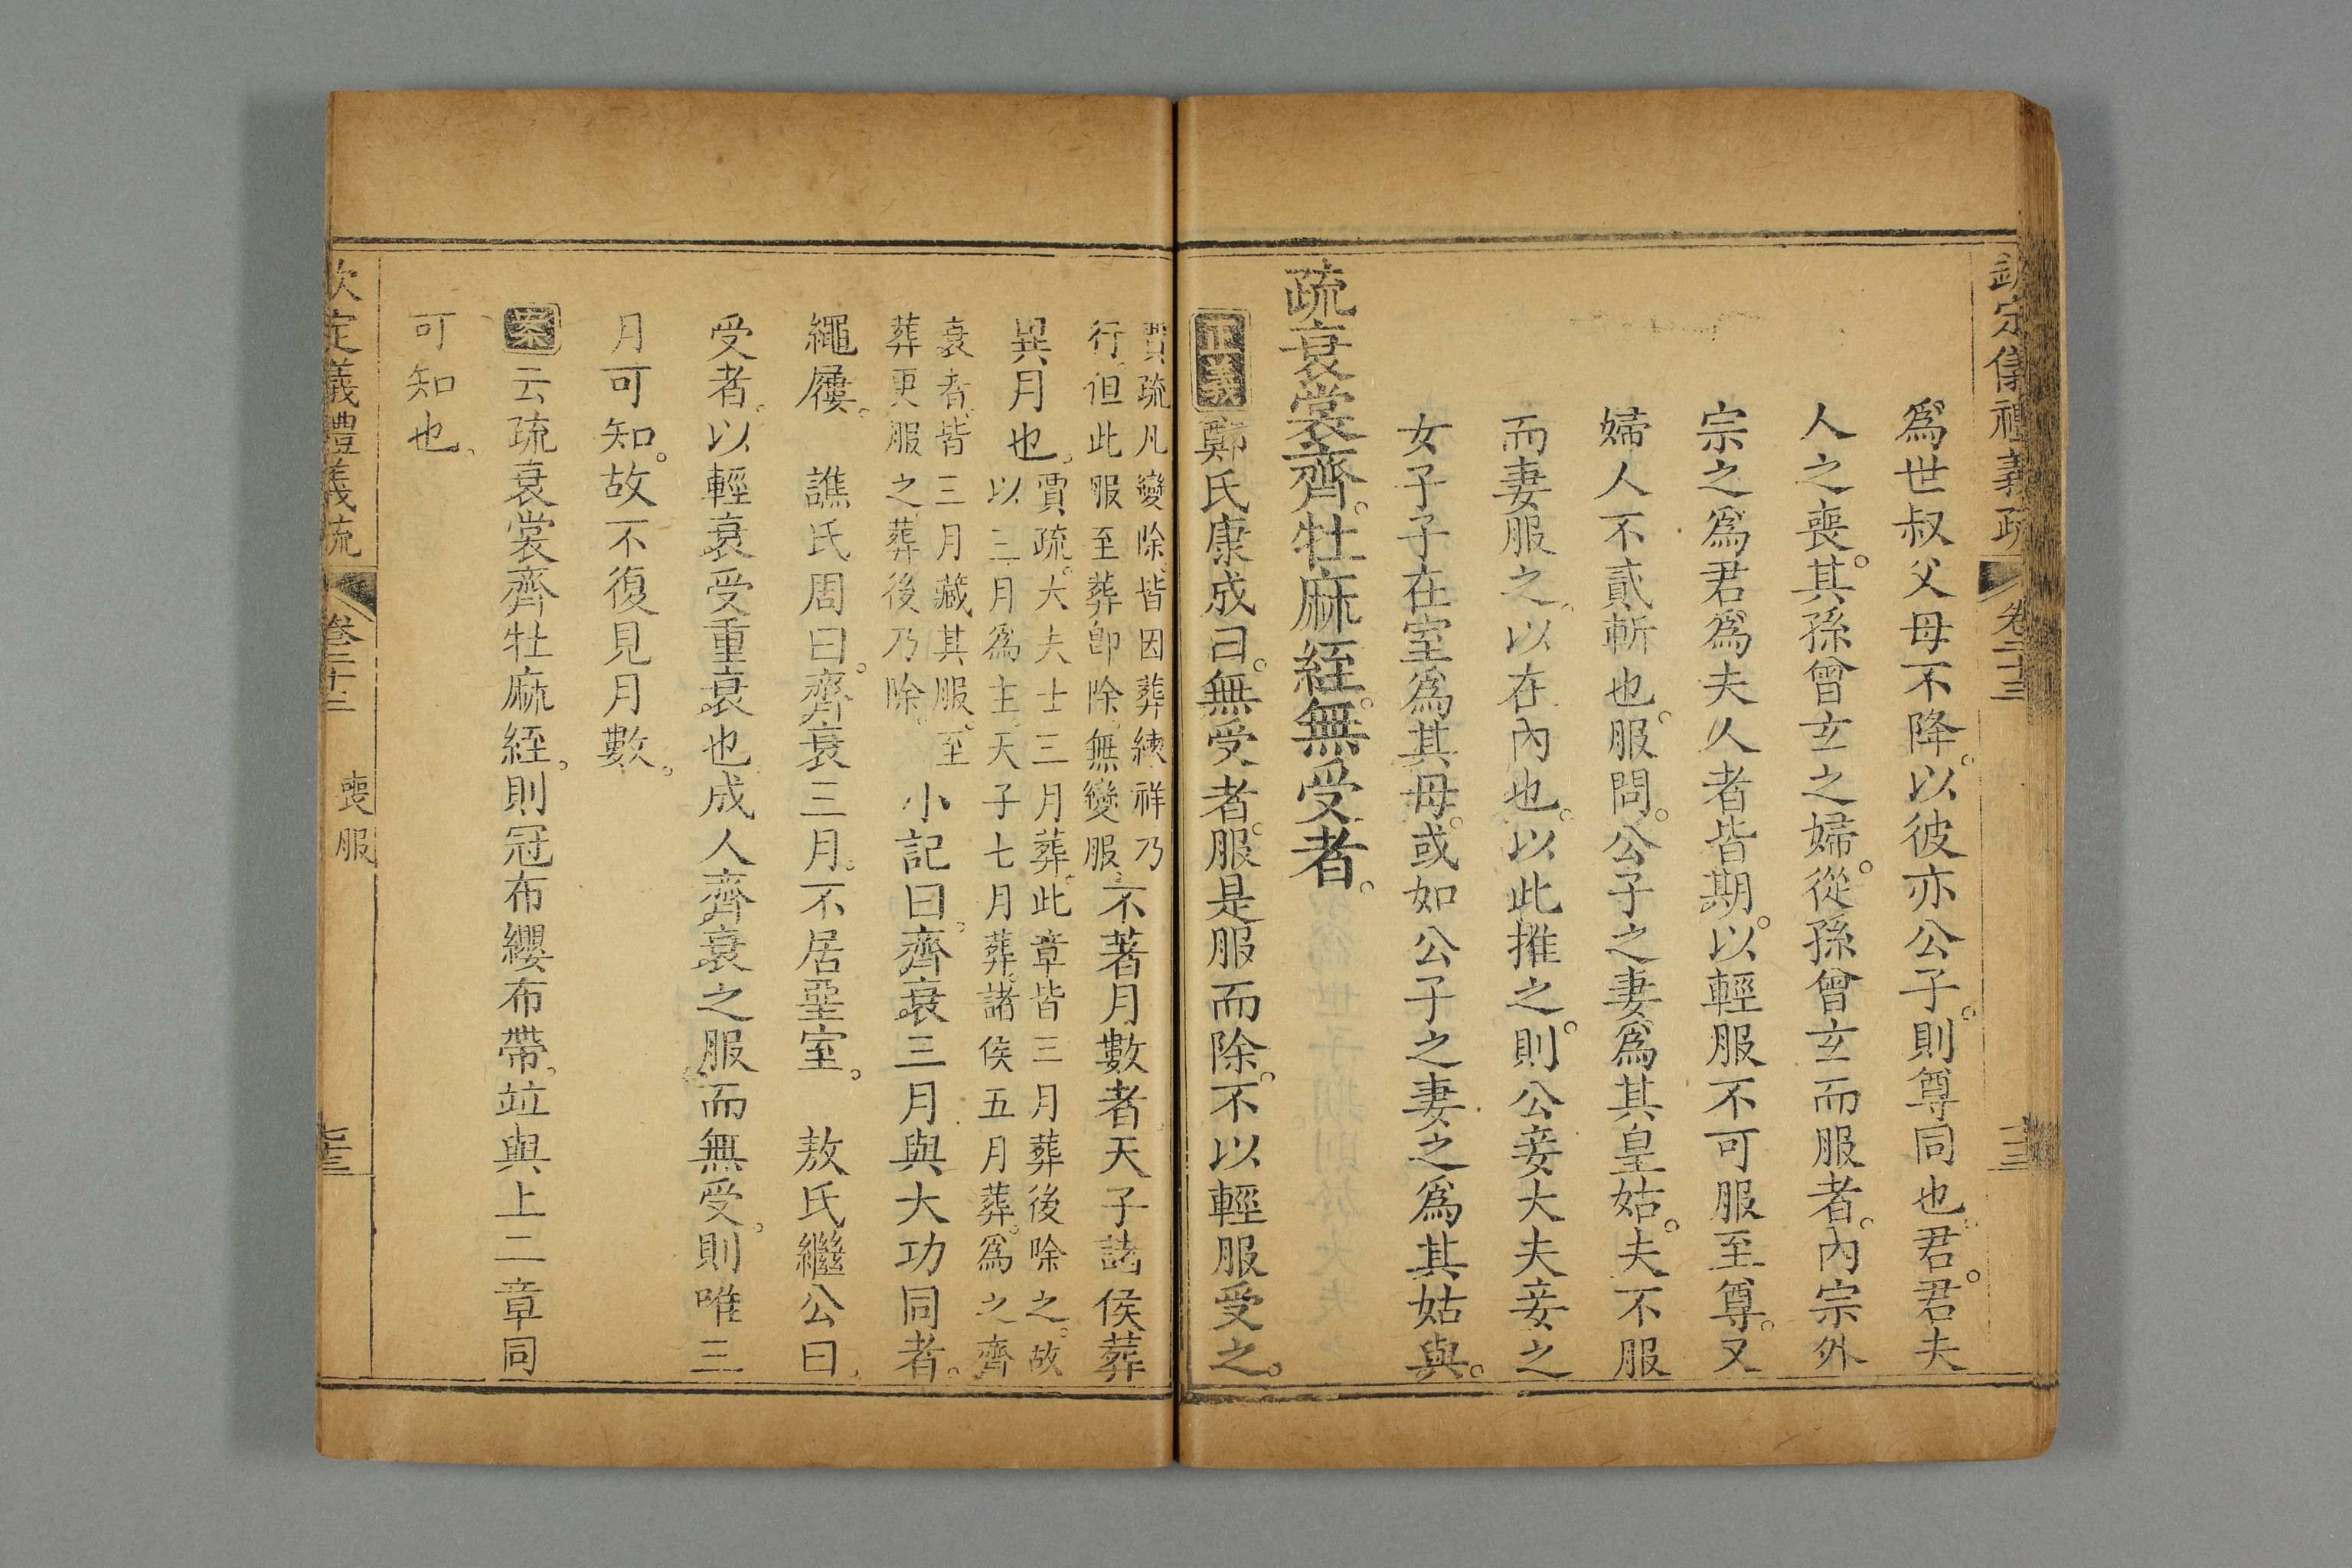 欽定儀禮義疏 卷二十三
爲世叔父母不降。以彼亦公子。則尊同也。君。君夫
人之喪。其孫曾玄之婦。從孫曾玄而服者。內宗外
宗之爲君爲夫人者皆期。以輕服不可服至尊。又
婦人不貳斬也。服問。公子之妻爲其皇姑。夫不服
而妻服之。以在內也。以此推之。則公妾大夫妾之
女子子在室爲其母。或如公子之妻之爲其姑與。
疏衰裳齊。牡麻絰。無受者。
正義鄭氏康成曰。無受者。服是服而除。不以輕服受之。
賈疏凡變除。皆因葬練祥乃
行。但此服至葬即除。無變服。
不著月數者天子諸侯葬
異月也。
賈疏。大夫士三月葬。此章皆三月葬後除之。故
以三月爲主。天子七月葬。諸侯五月葬。爲之齊
衰者。皆三月藏其服。至
葬更服之。葬後乃除。
小記曰。齊衰三月與大功同者。
繩屨。 譙氏周曰。齊衰三月。不居堊室。 敖氏繼公曰。
受者。以輕衰受重衰也成人齊衰之服而無受。則唯三
月可知。故不復見月數。
案云疏衰裳齊牡麻絰。則冠布纓布帶。竝與上二章同
可知也。
欽定儀禮義疏 卷二十三 喪服